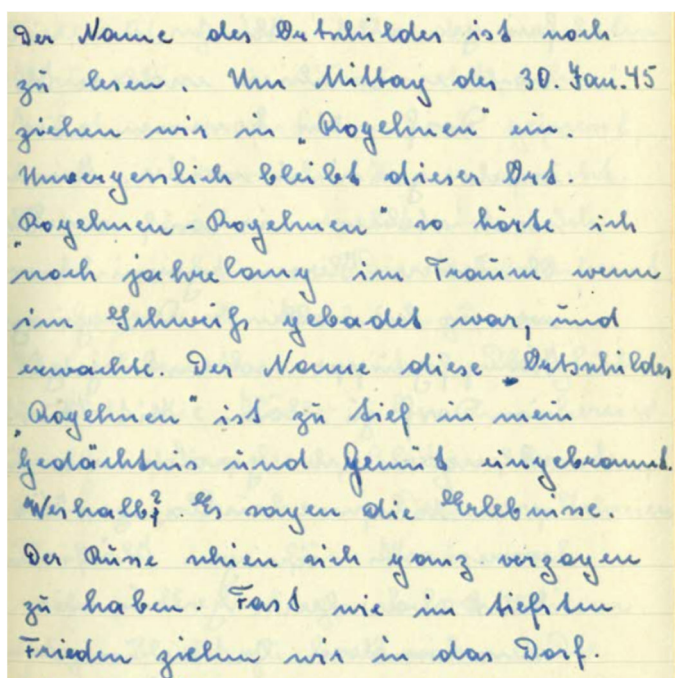 Der Name des Ortschildes ist noch
zu lesen. Um Mittag des 30. Jan. 45
ziehen wir in „Rogehnen" ein.
Unvergesslich bleibt dieser Ort.
„Rogehnen - Rogehnen" so hörte ich
noch jahrelang im Traum wenn
im Schweiß gebadet war, und
erwachte. Der Name diese Ortschildes
„Rogehnen" ist zu tief in mein
Gedächtnis und Gemüt eingebrannt.
Weshalb? Es sagen die Erlebnisse.
Der Russe schien sich ganz verzogen
zu haben Fast wie im tiefsten
Frieden ziehen wir in das Dorf.